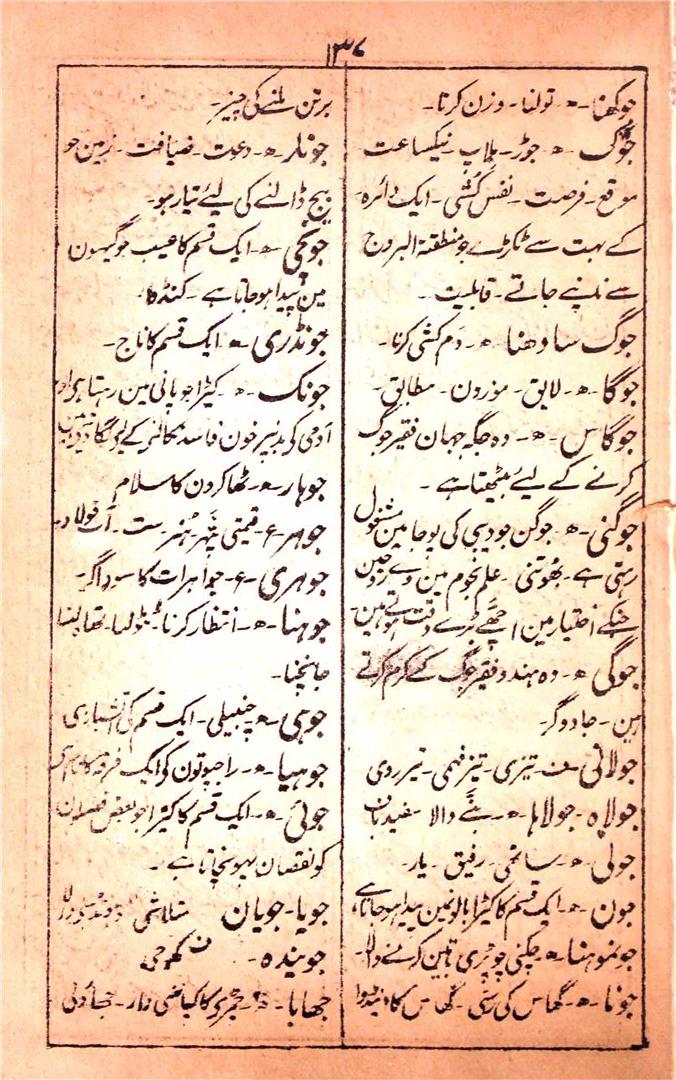 ۱۳۷
جوکھنا - ھ - تولنا - وزن کرنا -
جوگ - ھ - جوڑ - ملاپ - نیکساعت
موقع - فرصت - نفس کشی - ایک دائرہ
کے بہت سے ٹکڑے جو منطقة البروج
سے ناپنے جاتے - قابلیت -
جوگ سادھنا - ھ - دم کشی کرنا -
جوگا - ھ - لایق - موزون - مطابق -
جوگاس - ھ - وہ جگہ جہان فقیر جوگ
کرنے کے لیئے بیٹھتا ہے -
جوگنی - ھ - جوگن جو دیبی کی پوجا مین مشغول
رہتی ہے - بھوتنی - علم نجوم مین وے روحین
جنکے اختیار مین اچھے بُرے وقت ہوتے ہین -
جوگی - ھ - وہ ہندو فقیر جوگ کے کرم کرتے
ہین - جادوگر -
جولانی - ف - تیزی - تیز فہمی - تیز روی
جولاہ - جولاہا - ھ - بننے والا سفید باف
جولی - ھ - ساتھی - رفیق - یار -
جون - ھ - ایک قسم کا کیڑا بالونمین پیدا ہو جاتا ہے
جونموہنا - ھ - چکنی چوپڑی باتین کرنے والا -
جونا - ھ - گھاس کی رسّی - گھاس کا
برتن ملنے کی چیز -
جونار - ھ - دعوت - ضیافت - زمین جو
بیج ڈالنے کی لیئے تیار ہو -
جونچی - ھ - ایک قسم کا عیب جو گیہون
مین پیدا ہو جاتا ہے - کنڈوا -
جونڈری - ھ - ایک قسم کا ناج -
جونک - ھ - کیڑا جو پانی مین رہتا ہی اور
آدمی کی بدنپر خون فاسد نکالنے کے لیئے لگا دیتے ہین
جوہار - ھ - ٹھاکرون کا سلام
جوہر - ع - قیمتی پتھر - ہنر - ست - آب فولاد -
جوہری - ع - جواہرات کا سوداگر -
جوہنا - ھ - انتظار کرنا - ٹٹولنا - تھاہ لینا
جانچنا -
جوہی - ھ - چنبیلی - ایک قسم کی آتشبازی
جوہیا - ھ - راجپوتون کی ایک فرقہ کا نام ہی
جوئی - ھ - ایک قسم کا کیڑا جو بعض فصلون
کو نقصان پہونچاتا ہے -
جویا - جویان متلاشی ڈھونڈھنے والا
جویندہ - ف کھوجی
جھابا - ھ - چمڑے کا کپا